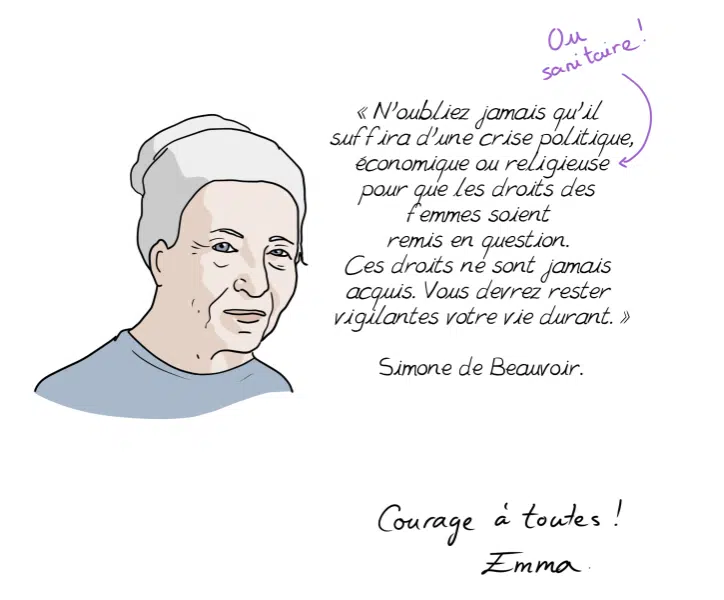 Ou
sanitaire !
« N'oubliez jamais qu'il
suffira d'une crise politique,
économique ou religieuse
pour que les droits des
femmes soient
remis en question.
Ces droits ne sont jamais
acquis. Vous devrez rester
vigilantes votre vie durant. »
Simone de Beauvoir.
Courage à toutes !
Emma